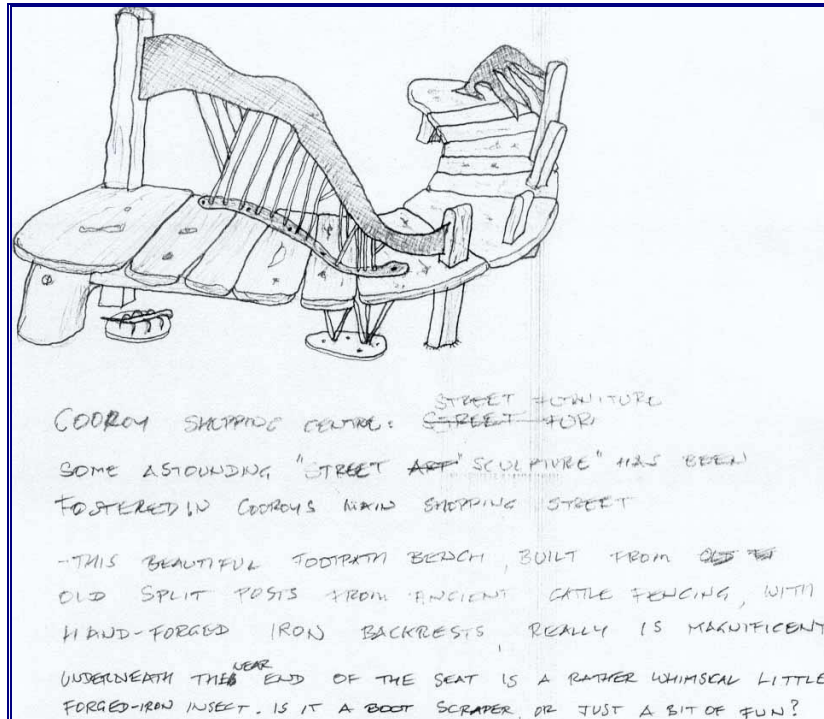 STREET FURNITURE
COOROY SHOPPING CENTRE: STREET FUR
SOME ASTOUNDING "STREET ART" SCULPTURE" HAS BEEN
FOSTERED IN COOROYS MAIN SHOPPING STREET
-THIS BEAUTIFUL FOOTPATH BENCH, BUILT FROM OLD
OLD SPLIT POSTS FROM ANCIENT CATTLE FENCING, WITH
HAND-FORGED IRON BACKRESTS, REALLY IS MAGNIFICENT
NEAR
UNDERNEATH THE END OF THE SEAT IS A RATHER WHIMSICAL LITTLE
FORGED-IRON INSECT. IS IT A BOOT SCRAPER, OR JUST A BIT OF FUN?